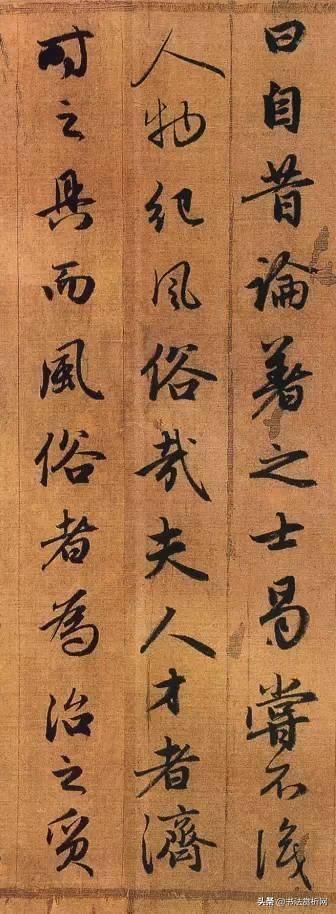 曰自昔論著之士曷嘗不識
人物紀風俗哉夫人才者濟
時之具而風俗者為治之質
头条 @书法赏析网